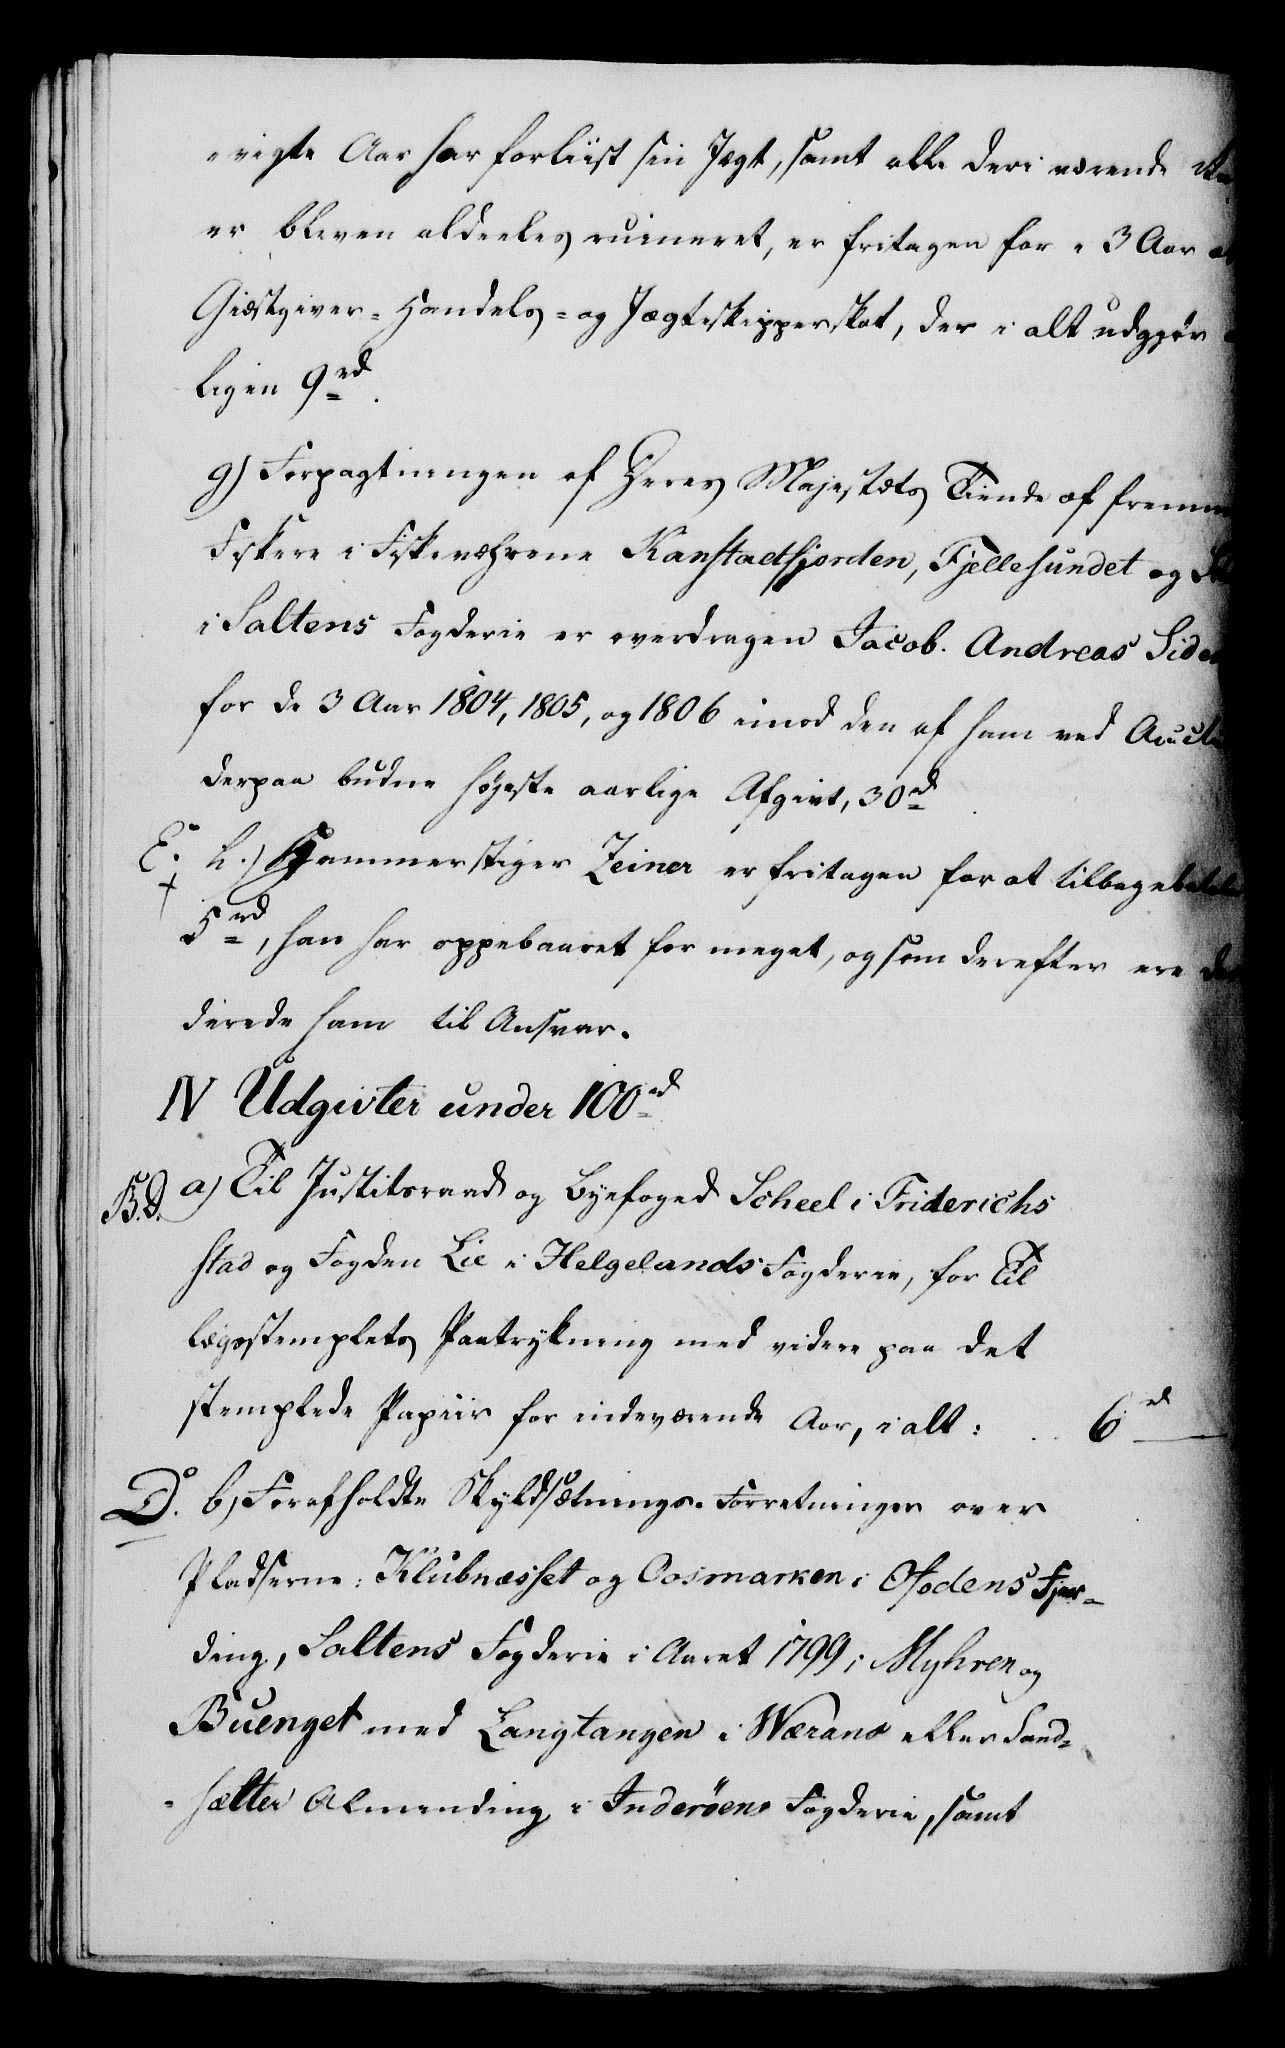 vigte Aar har forliist sin Jægt, samt alle deri værende
er bleven aldeeles ruineret, er fritagen for i 3 Aar at
Giæstgiver-Handels- og Jægteskipperskat, der i alt udgjør
ligen 9 rd.
g) Forpagtningen af Deres Majestæts Tiende af fremm
Fiskere i Fiskeværene Kanstadfjorden, Fjellesundet og
i Saltens Fogderie er overdragen Jacob Andreas Side
for de 3 Aar 1804, 1805, og 1806 imod den af ham ved Auct
derpaa budne høyeste aarlige Afgivt, 30 rd.
E. h.) Hammerstiger Zeiner er fritagen for at tilbagebetale
+ 5 rd, han har oppebaaret for meget, og som derefter ere
direde ham til Ansvar.
IV Udgivter under 100 rd
B.D. a) Til Justitsraad og Byefoged Scheel i Friderichs
stad og Fogden Lie i Helgelands Fogderie, for Til
lægsstemplets Paatrykning med videre paa det
stemplede Papiir for indeværende Aar, i alt: .. 6 rd
D. b) For afholdte Skyldsætnings-Forretninger over
Pladserne: Klubnæsset og Oosmarken i Ofodens Fjer-
ding, Saltens Fogderie i Aaret 1799; Myhren og
Buenget med Langtangen i Wærans eller Sand-
-sætter Almending i Inderöens Fogderie, samt